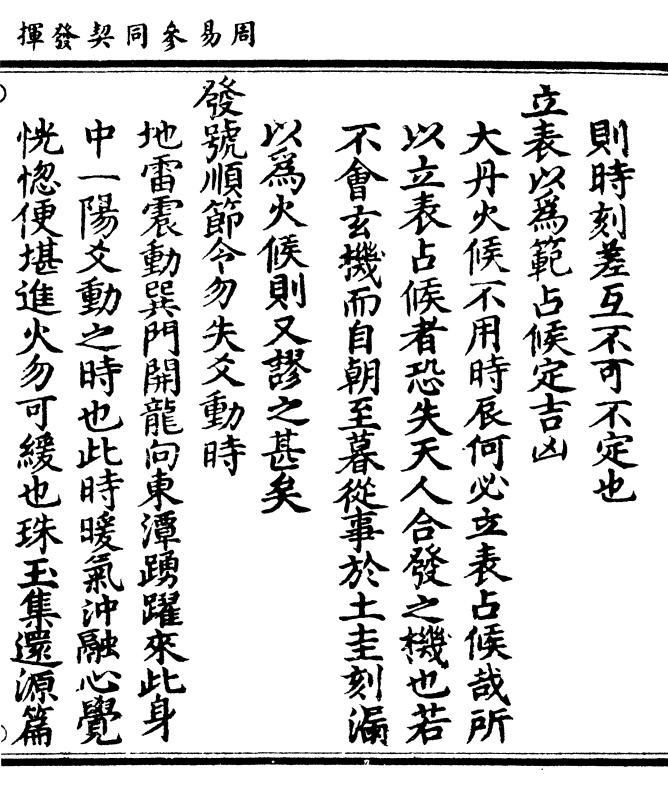 周易參同契發揮
則時刻差互不可不定也
立表以為範占候定吉凶
大丹火候不用時辰何必立表占候哉所
以立表占候者恐失天人合發之機也若
不會玄機而自朝至暮從事於土圭刻漏
以為火候則又謬之甚矣
發號順節令勿失爻動時
地雷震動巽門開龍向東潭踴躍來此身
中一陽爻動之時也此時暖氣沖融心覺
恍惚便堪進火勿可緩也珠玉集還源篇